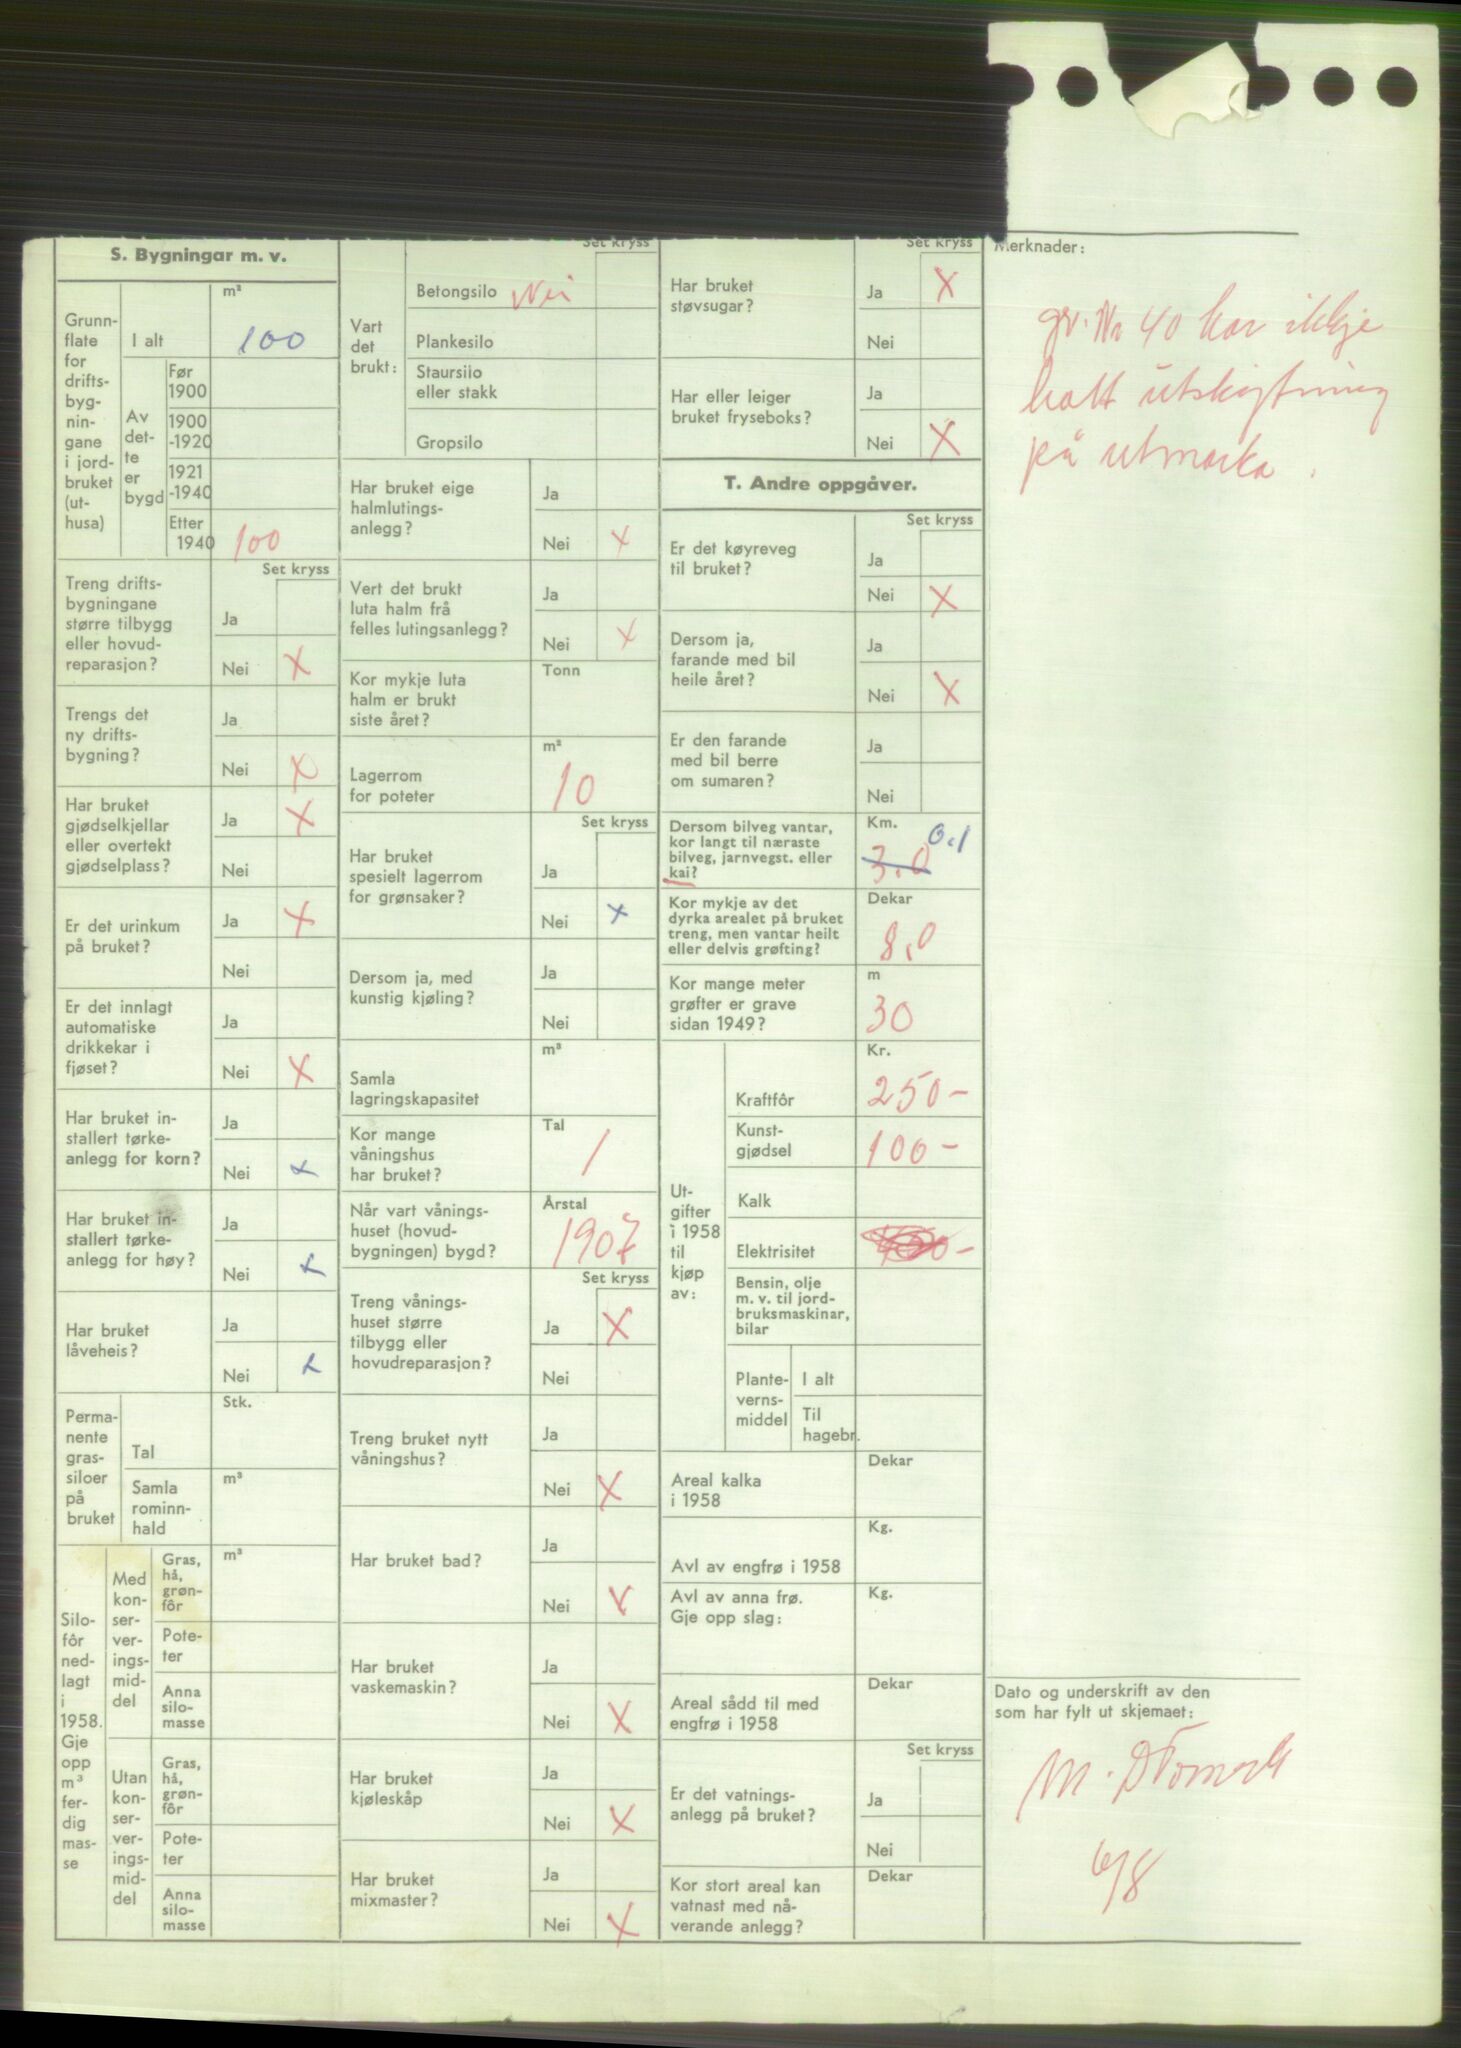 S. Bygningar m. v.
Grunn-
flate
for
drifts-
byg-
nin-
gane
i jord-
bruket
(ut-
husa)
m²
I alt 100
Av
det-
te
er
bygd
Før
1900
1900
-1920
1921
-1940
Etter
1940 100
Set kryss
Treng drifts-
bygningane
større tilbygg
eller hovud-
reparasjon?
Ja
Nei X
Trengs det
ny drifts-
bygning?
Ja
Nei X
Har bruket
gjødselkjellar
eller overtekt
gjødselplass?
Ja X
Nei
Er det urinkum
på bruket?
Ja X
Nei
Er det innlagt
automatiske
drikkekar i
fjøset?
Ja
Nei X
Har bruket in-
stallert tørke-
anlegg for korn?
Ja
Nei x
Har bruket in-
stallert tørke-
anlegg for høy?
Ja
Nei x
Har bruket
låveheis?
Ja
Nei x
Perma-
nente
gras-
siloer
på
bruket
Stk.
Tal
Samla
rominn-
hald
m³
Silo-
fôr
ned-
lagt
i
1958.
Gje
opp
m³
fer-
dig
mas-
se
Med
kon-
ser-
ver-
ings-
mid-
del
Gras,
hå,
grøn-
fôr
m³
Pote-
ter
Anna
silo-
masse
Utan
kon-
ser-
ver-
ings-
mid-
del
Gras,
hå,
grøn-
fôr
Pote-
ter
Anna
silo-
masse
Set kryss
Vart
det
brukt:
Betongsilo Nei
Plankesilo
Staursilo
eller stakk
Gropsilo
Har bruket eige
halmlutings-
anlegg?
Ja
Nei X
Vert det brukt
luta halm frå
felles lutingsanlegg?
Ja
Nei X
Kor mykje luta
halm er brukt
siste året?
Tonn
Lagerrom
for poteter
m²
10
Set kryss
Har bruket
spesielt lagerrom
for grønsaker?
Ja
Nei x
Dersom ja, med
kunstig kjøling?
Ja
Nei
Samla
lagringskapasitet
m³
Kor mange
våningshus
har bruket?
Tal
1
Når vart vånings-
huset (hovud-
bygningen) bygd?
Årstal
1907
Set kryss
Treng vånings-
huset større
tilbygg eller
hovudreparasjon?
Ja X
Nei
Treng bruket nytt
våningshus?
Ja
Nei X
Har bruket bad?
Ja
Nei X
Har bruket
vaskemaskin?
Ja
Nei X
Har bruket
kjøleskåp
Ja
Nei X
Har bruket
mixmaster?
Ja
Nei X
Set kryss
Har bruket
støvsugar?
Ja X
Nei
Har eller leiger
bruket fryseboks?
Ja
Nei X
T. Andre oppgåver.
Set kryss
Er det køyreveg
til bruket?
Ja
Nei X
Dersom ja,
farande med bil
heile året?
Ja
Nei X
Er den farande
med bil berre
om sumaren?
Ja
Nei
Dersom bilveg vantar,
kor langt til næraste
bilveg, jarnvegst. eller
kai?
Km.
0,1
3,0
Kor mykje av det
dyrka arealet på bruket
treng, men vantar heilt
eller delvis grøfting?
Dekar
8,0
Kor mange meter
grøfter er grave
sidan 1949?
m
30
Ut-
gifter
i 1958
til
kjøp
av:
Kr.
Kraftfôr 250-
Kunst-
gjødsel 100-
Kalk
Elektrisitet
Bensin, olje
m. v. til jord-
bruksmaskinar,
bilar
Plante-
verns-
middel
I alt
Til
hagebr.
Areal kalka
i 1958
Dekar
Avl av engfrø i 1958
Kg.
Avl av anna frø.
Gje opp slag:
Kg.
Areal sådd til med
engfrø i 1958
Dekar
Set kryss
Er det vatnings-
anlegg på bruket?
Ja
Nei
Kor stort areal kan
vatnast med nå-
verande anlegg?
Dekar
Merknader:
gr. Nr 40 har ikkje
hatt utskiftning
på utmarka.
Dato og underskrift av den
som har fylt ut skjemaet:
6/8